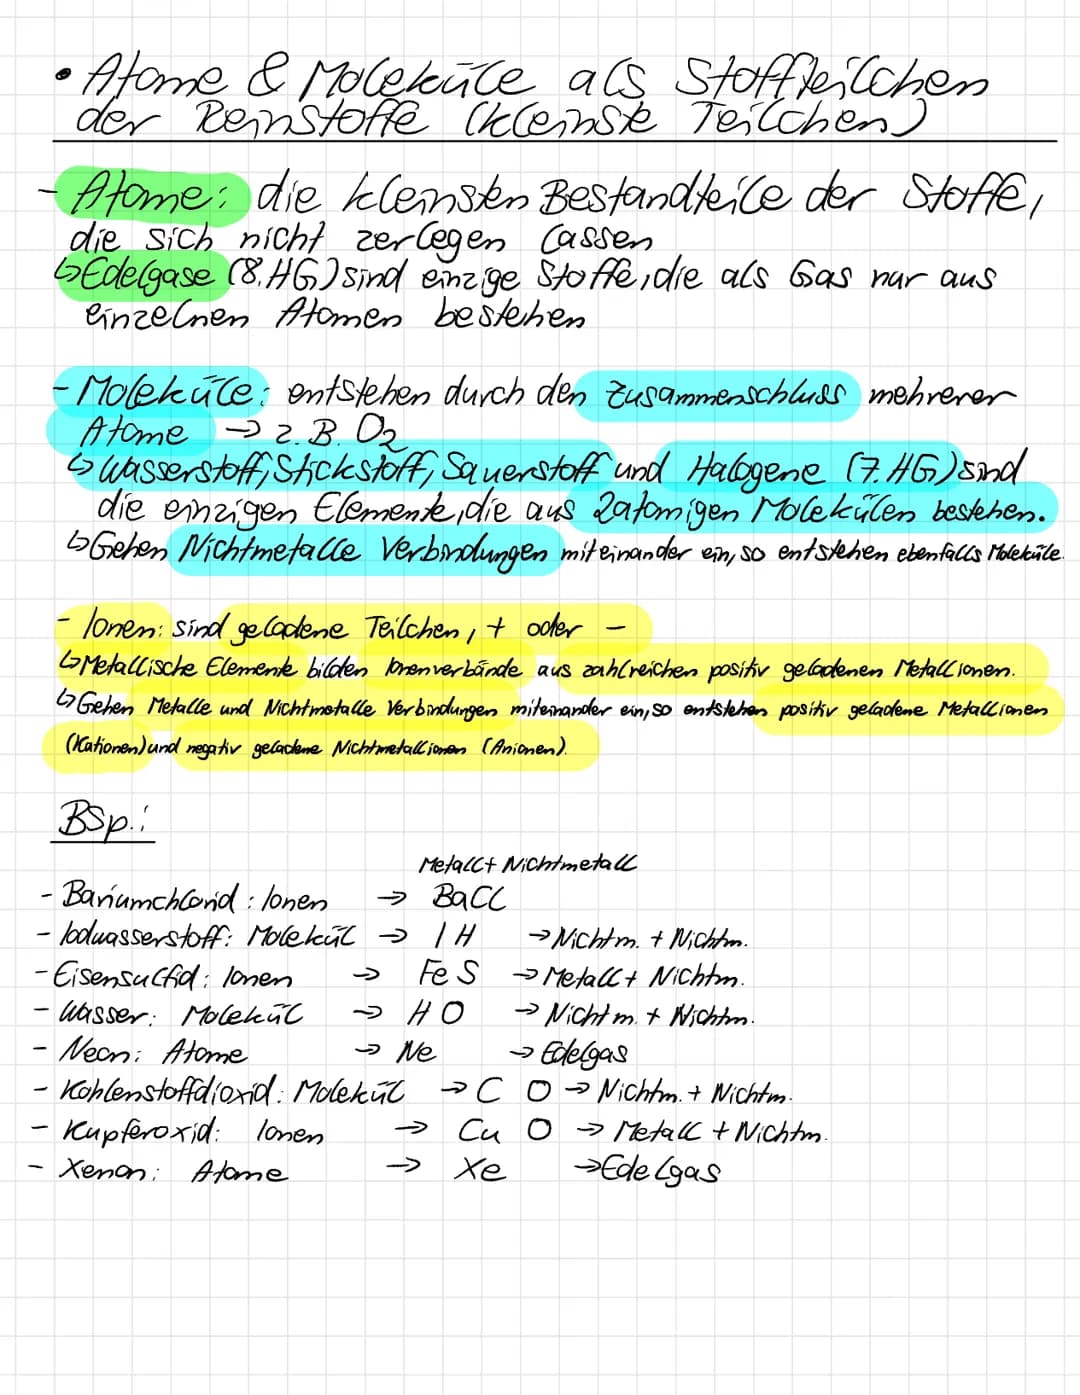 • Atome & Moleküle als Stoffteilchen
der Reinstoffe (kleinste Teilchen)
- Atome: die kleinsten Bestandteile der Stoffe,
die sich nicht zerlegen lassen
↳ Edelgase (8. HG) sind einzige Stoffe, die als Gas nur aus
einzelnen Atomen bestehen
- Moleküle: entstehen durch den Zusammenschluss mehrerer
Atome → z.B. O2
↳ Wasserstoff, Stickstoff, Sauerstoff und Halogene (7. HG) sind
die einzigen Elemente, die aus 2atomigen Molekülen bestehen.
↳ Gehen Nichtmetalle Verbindungen miteinander ein, so entstehen ebenfalls Moleküle.
- Ionen: sind geladene Teilchen, + oder -
↳ Metallische Elemente bilden Ionenverbände aus zahlreichen positiv geladenen Metallionen.
↳ Gehen Metalle und Nichtmetalle Verbindungen miteinander ein, so entstehen positiv geladene Metallionen
(Kationen) und negativ geladene Nichtmetallionen (Anionen).
Bsp.:
Metall + Nichtmetall
- Bariumchlorid: Ionen → BaCl
- Iodwasserstoff: Molekül → I H → Nichtm. + Nichtm.
- Eisensulfid: Ionen → Fe S → Metall + Nichtm.
- Wasser: Molekül → H O → Nichtm. + Nichtm.
- Neon: Atome → Ne → Edelgas
- Kohlenstoffdioxid: Molekül → C O → Nichtm. + Nichtm.
- Kupferoxid: Ionen → Cu O → Metall + Nichtm.
- Xenon: Atome → Xe → Edelgas